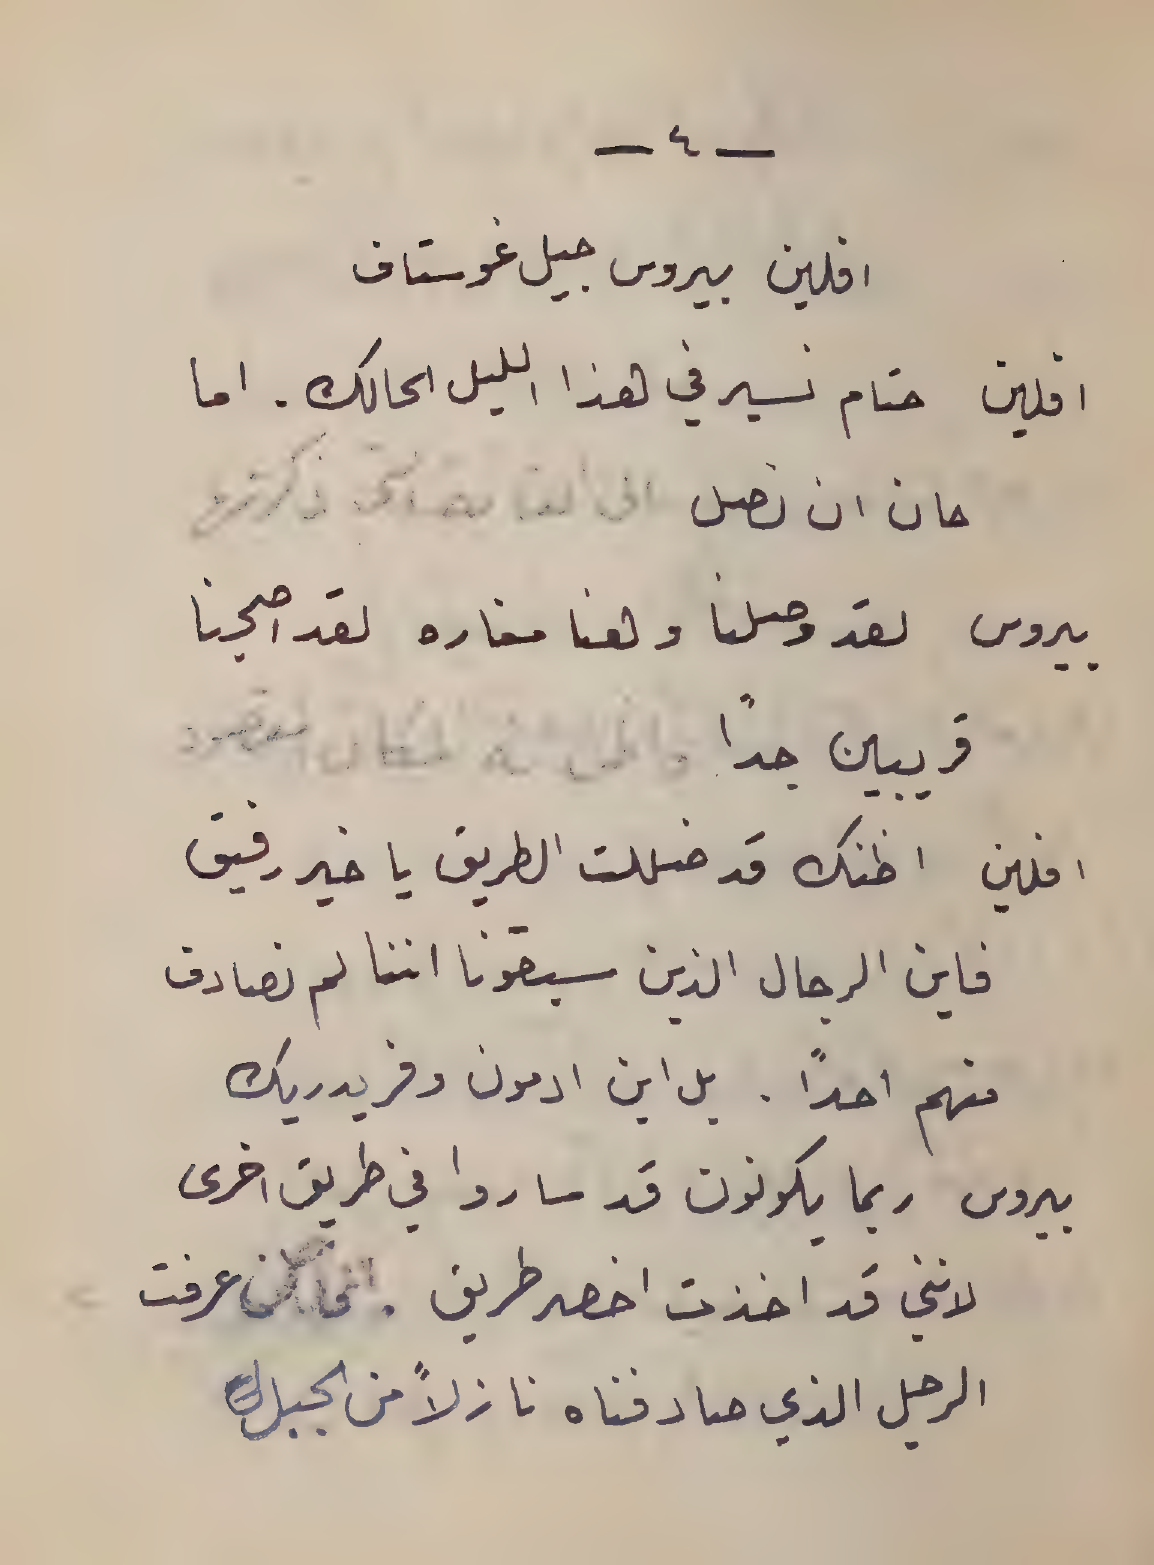 — ٤ —
افلين بيروس جيل غوستاف
افلين حتام نسير في هذا الليل الحالك . اما
حان ان نصل
بيروس لقد وصلنا وهنا مغاره لقد اصبحنا
قريبين جدًا
افلين اظنك قد ضللت الطريق يا خير رفيق
فاين الرجال الذين سبقونا اننا لم نصادف
منهم احدًا . بل اين ادمون وفريدريك
بيروس ربما يكونون قد ساروا في طريق اخرى
لانني قد اخذت اخصر طريق . عرفت
الرجل الذي صادفناه نازلاً من الجبل